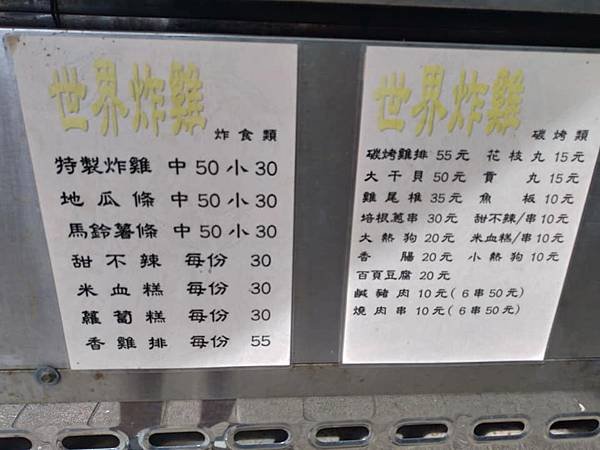 世界炸雞
炸食類
特製炸雞 中 50 小 30
地瓜條 中 50 小 30
馬鈴薯條 中 50 小 30
甜不辣 每份 30
米血糕 每份 30
蘿蔔糕 每份 30
香雞排 每份 55
世界炸雞
碳烤類
碳烤雞排 55元 花枝丸 15元
大干貝 50元 貢丸 15元
雞尾椎 35元 魚板 10元
培根蔥串 30元 甜不辣/串10元
大熱狗 20元 米血糕/串10元
香腸 20元 小熱狗 10元
百頁豆腐 20元
鹹豬肉 10元(6串50元)
燒肉串 10元(6串50元)